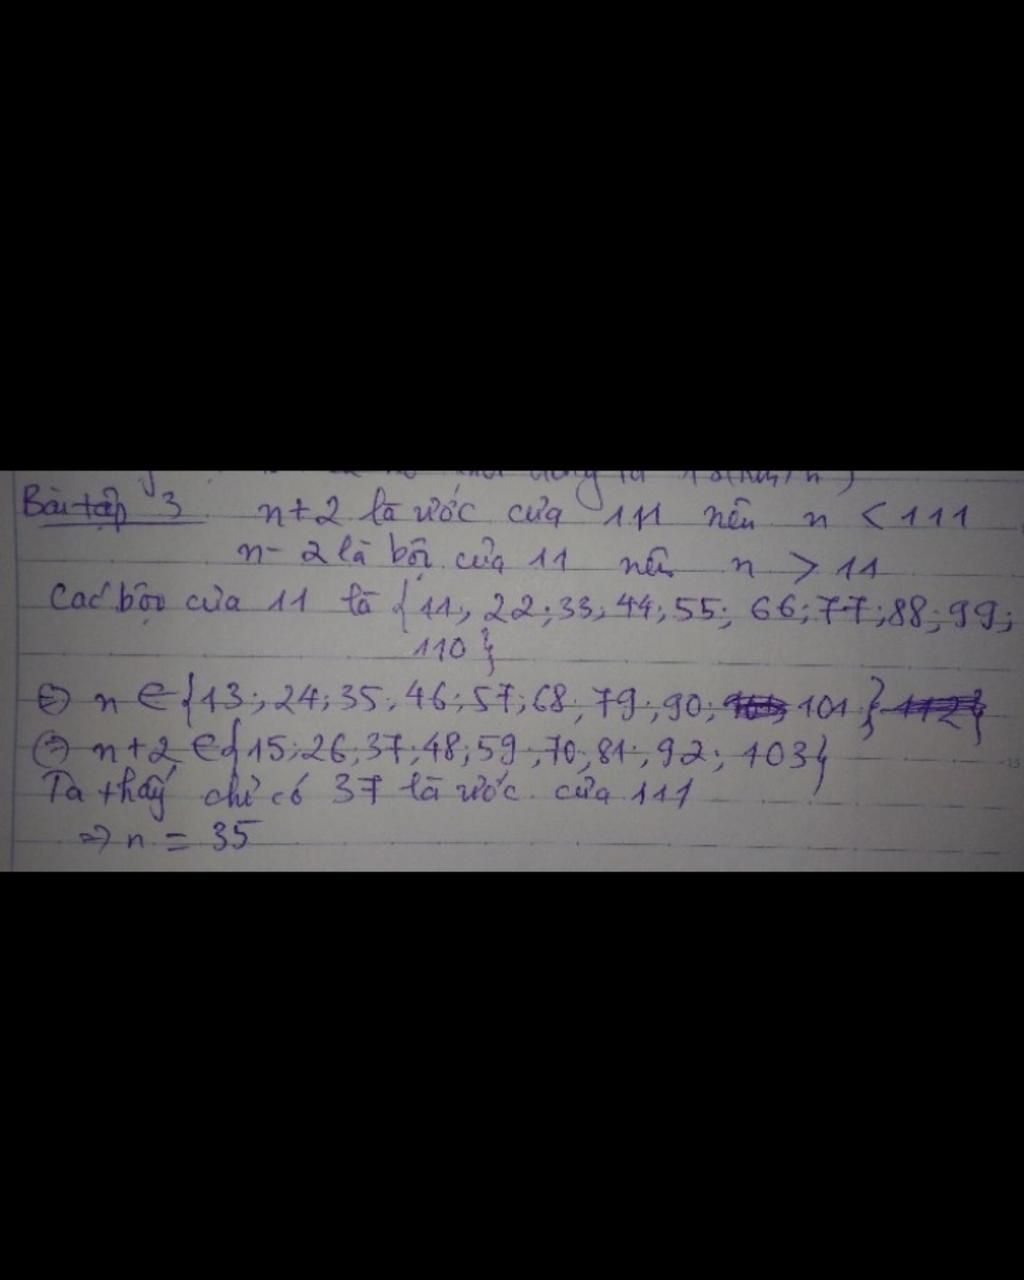 Bài tập 3 n+2 là ước của 111 nên n < 111
n-2 là bội của 11 nên n > 11
Các bội của 11 là {11; 22; 33; 44; 55; 66; 77; 88; 99;
110}
⇔ n ∈ {13; 24; 35; 46; 57; 68; 79; 90; 101}
⇔ n+2 ∈ {15; 26; 37; 48; 59; 70; 81; 92; 103}
Ta thấy chỉ có 37 là ước của 111
⇒ n = 35